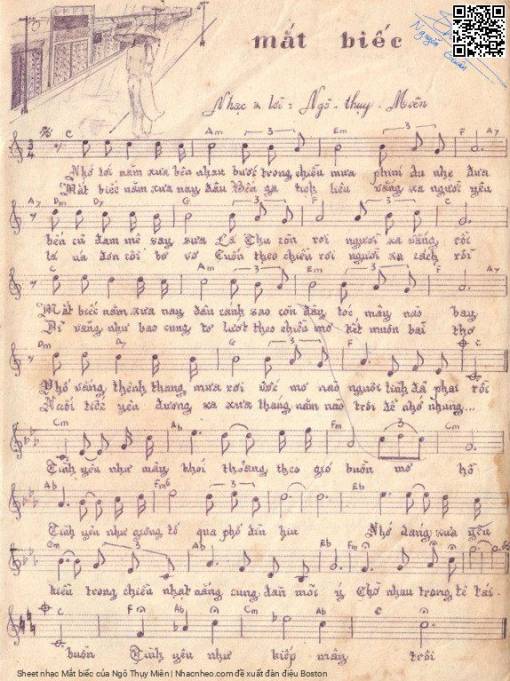 mắt biếc
Nguyễn
Nhạc & lời : Ngô - thụy - Miên
C Am Em F A7
Nhớ tới năm xưa bên nhau bước trong chiều mưa phím du nhẹ đưa
Mắt biếc năm xưa nay đâu Bến ga tịch liêu vắng xa người yêu
A7 Dm G C
bến cũ đam mê say sưa Lá Thu còn rơi người xa vắng rồi
lá úa đơn côi bơ vơ Cuốn theo chiều rơi người xa cách rồi
C Am Em
Mắt biếc năm xưa nay đâu cánh sao còn đây tóc mây nào bay
Dĩ vãng như bao cung tơ lướt theo chiều mơ kết muôn bài thơ
Dm G F C
Phố vắng thênh thang mưa rơi ước mơ nào nguôi tình đã phai rồi
Nuối tiếc yêu đương xa xưa tháng năm nào trôi để nhớ nhung...
Cm Ab Fm Cm
Tình yêu như mây khói thoảng theo gió buồn mơ hồ
Ab Fm6 Eb
Tình yêu như giông tố qua phố đìu hiu Nhớ dáng xưa yêu
Cm Ab Eb Fm
kiều trong chiều nhạt nắng cung đàn mồi ý Chờ nhau trong tê tái.
C F Ab Cm Am C
buồn Tình yêu như kiếp mây trôi
Sheet nhạc Mắt biếc của Ngô Thụy Miên | Nhacnheo.com đề xuất đàn điệu Boston